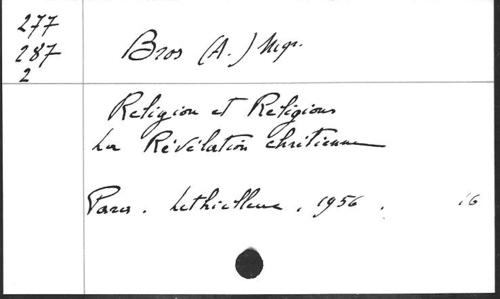 277
287
2
Bros (A.) Mgr.
Religion et Religions
La Révélation chrétienne
Paris. Lethielleux. 1956. 16